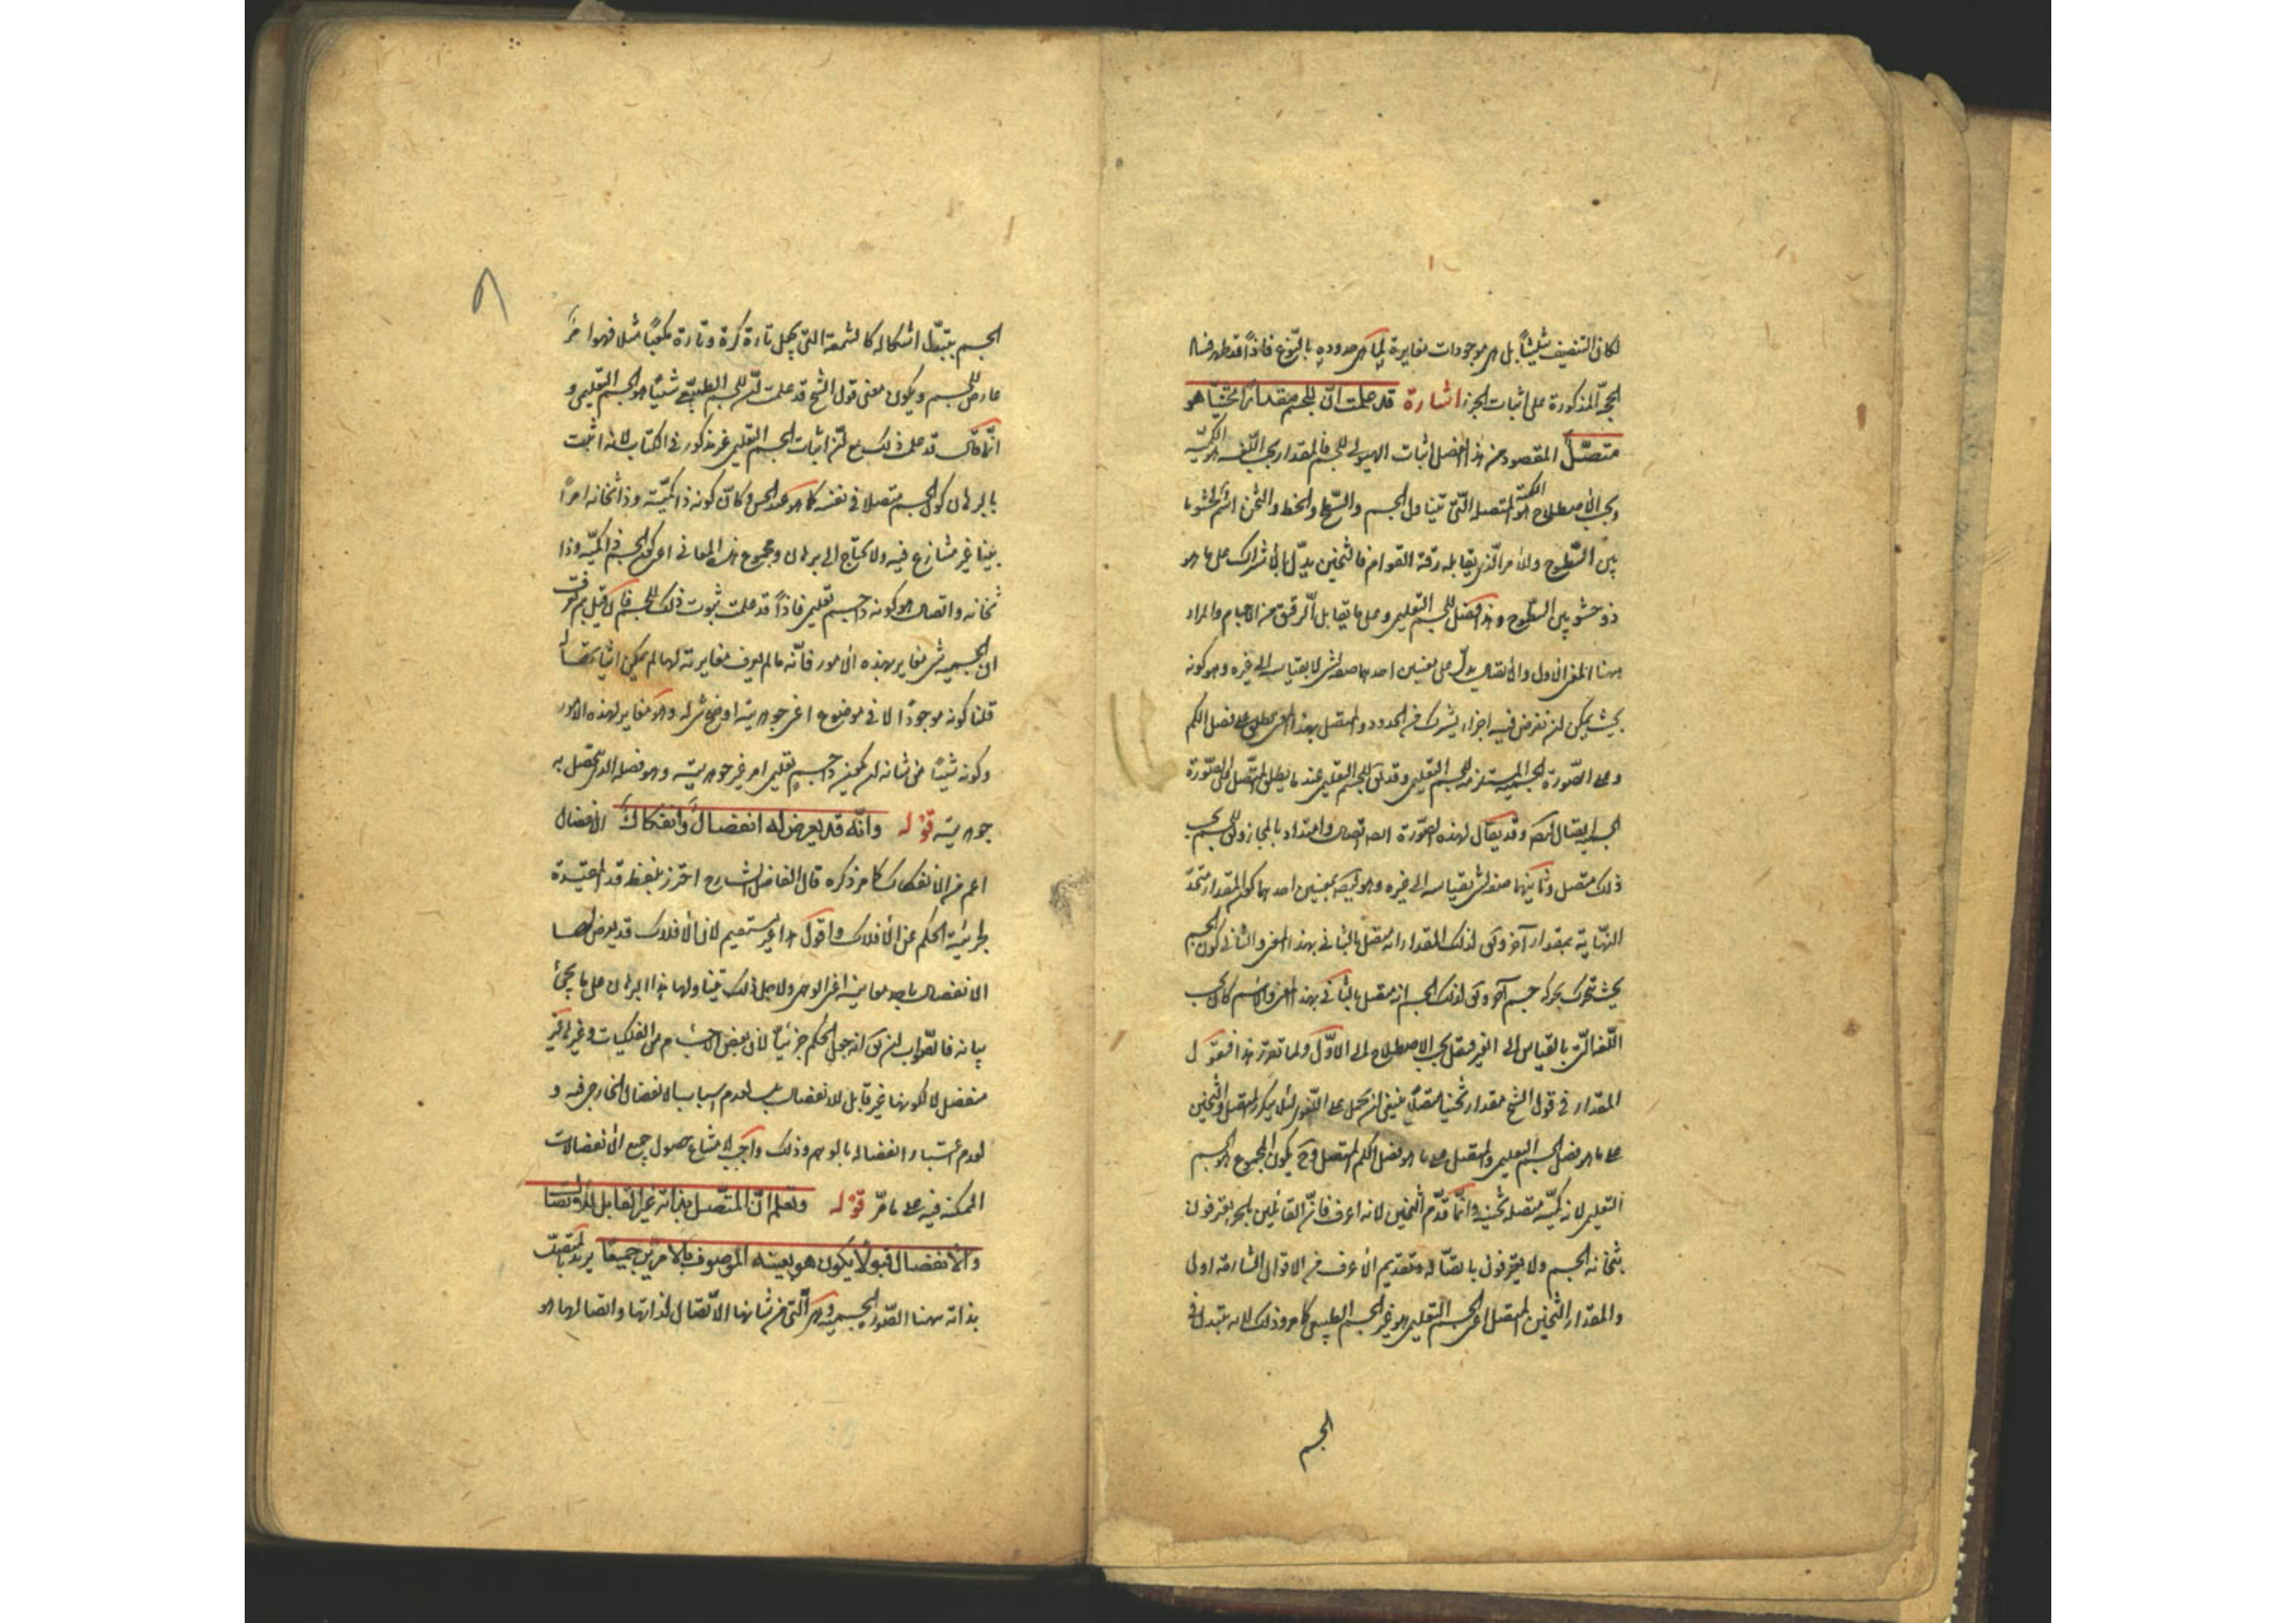 لكان التنصيف تثليثاً بل هي موجودات مغايرة لما هي حدوده بالنوع فاذاً قد ظهر فساد
الحجة المذكورة على اثبات الجزء اشارة قد علمت ان للجسم مقداراً ثخيناً هو
متصل المقصود من هذا الفصل اثبات الهيولى للجسم فالمقدار بحسب اللغة هو الكمية
وبحسب الاصطلاح هو الكمية المتصلة التي تتناول الجسم والسطح والخط والثخن اسم لحشو ما
بين السطوح وللامر الذي يقابله رقة القوام فالثخين يدل بالاشتراك على ما هو
ذو حشو بين السطوح وهذا فصل للجسم التعليمي وعلى ما يقابل الرقيق من الاجسام والمراد
ههنا المعنى الاول والاتصال يدل على معنيين احدهما صفة لشئ لا بقياسه الى غيره وهو كونه
بحيث يمكن ان تفرض فيه اجزاء يشترك في الحدود والمتصل بهذا المعنى يطلق على فصل الكم
وعلى الصورة الجسمية المستلزمة للجسم التعليمي وقد يق للجسم التعليمي عند ما يطلق المتصل على الصورة
الجسمية اتصال ايضا وقد يقال لهذه الصورة ايضا اتصال وامتداد بالمجاز ويق للجسم بحسب
ذلك متصل وثانيهما صفة لشئ بقياسه الى غيره وهو ايضا بمعنيين احدهما كون المقدار متحد
النهاية بمقدار آخر ويق لذلك المقدار انه متصل بالثاني بهذا المعنى والثاني كون الجسم
بحيث يتحرك بحركة جسم آخر ويق لذلك الجسم انه متصل بالثاني بهذا المعنى والاسم كان بحسب
اللغة للذي بالقياس الى الغير فنقل بحسب الاصطلاح الى الاول ولما تقرر هذا فنقول
المقدار في قول الشيخ مقدارا ثخينا متصلا ينبغي ان يحمل على اللغوي لئلا يتكرر المتصل والثخين
على ما هو فصل الجسم التعليمي والمتصل على ما هو فصل الكم المتصل وح يكون المجموع هو الجسم
التعليمي لانه كمية متصلة ثخينة وانما قدم الثخين لانه اعرف فان القائلين بالجزء يعترفون
بثخانة الجسم ولا يعترفون باتصاله وتقديم الاعرف في الاقوال الشارحة اولى
والمقدار الثخين المتصل اعني الجسم التعليمي هو غير الجسم الطبيعي كما مر وذلك لانه يتبدل في
الجسم
الجسم بتبدل اشكاله كالشمعة التي يجعل تارة كرة وتارة مكعبا مثلا فهو امر
عارض للجسم ويكون معنى قول الشيخ قد علمت ان للجسم الطبيعي شيئا هو الجسم التعليمي و
انما قال قد علمت ذلك مع ان اثبات الجسم التعليمي غير مذكور في الكتاب لانه اثبت
بالبرهان كون الجسم متصلا في نفسه كما هو عند الحس وكان كونه ذا كمية وذا ثخانة امرا
بينا غير متنازع فيه ولا يحتاج الى برهان ومجموع هذه المعاني اعني كون الجسم ذا كمية وذا
ثخانة واتصال هو كونه ذا جسم تعليمي فاذاً قد علمت ثبوت ذلك للجسم فان قيل بم عرفت
ان الجسمية شئ مغاير لهذه الامور فانه ما لم يعرف مغايرته لها لم يمكن اثباتها
قلنا كونه موجودا لا في موضوع اعني جوهريته اوضح شئ له وهو مغاير لهذه الامور
وكونه شيئا من شانه ان يكون ذا جسم تعليمي امر غير جوهريته وهو فصله الذي تحصل به
جوهريته قوله وانه قد يعرض له انفصال وانفكاك الانفصال
اعم من الانفكاك كما مر ذكره قال الفاضل الشارح احترز بلفظة قد المفيدة
لجزئية الحكم عن الافلاك واقول هذا غير مستقيم لان الافلاك قد يعرض لها
الانفصال باحد معانيه اعني الوهمي ولاجل ذلك يتناولها هذا البرهان على ما يجئ
بيانه فالصواب ان يق انه جعل الحكم جزئيا لان بعض الاجسام من الفلكيات وغيرها غير
منفصل لا لكونها غير قابل للانفصال بل لعدم اسباب الانفصال الخارجي فيه و
لعدم اعتبار انفصاله بالوهم وذلك واجب لامتناع حصول جميع الانفصالات
الممكنة فيه على ما مر قوله وتعلم ان المتصل بذاته غير القابل للاتصال
والانفصال قبولا يكون هو بعينه الموصوف بالامرين جميعا يريد بالمتصل
بذاته ههنا الصورة الجسمية وهي التي من شانها الاتصال لذاتها واتصالها هو
٨